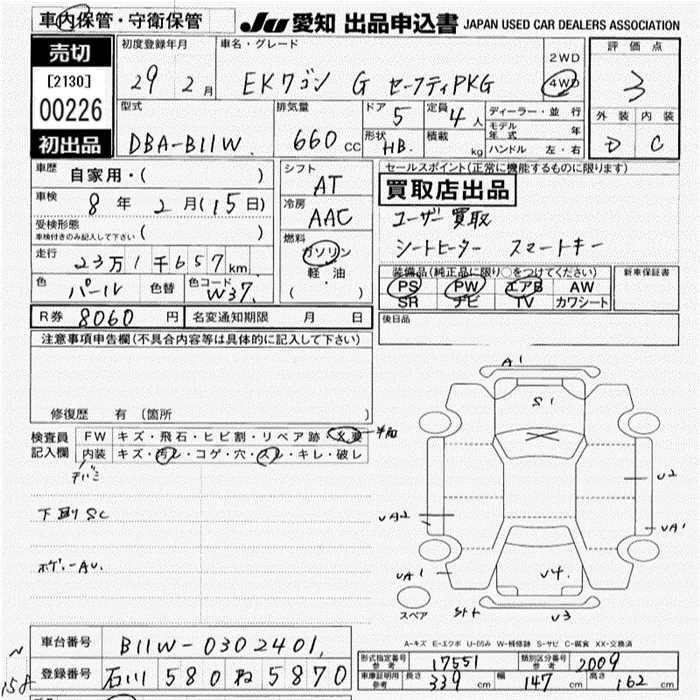 車内保管・守衛保管
JU 愛知 出品申込書 JAPAN USED CAR DEALERS ASSOCIATION
売切
[2130]
00226
初出品
初度登録年月
29 2月
車名・グレード
EKワゴン G セーフティPKG
2WD
4WD
評価点
3
外装 内装
D C
型式
DBA-B11W
排気量
660 CC
ドア 5
定員 4人
形状 HB.
積載 kg
ディーラー・並行
モデル年式 年
ハンドル 左・右
車歴 自家用・( )
車検 8年 2月(15日)
受検形態 ( )
車検付きのみ記入して下さい
走行 23万1千657km
色 パール 色替 色コード W37.
シフト
AT
冷房
AAC
燃料
ガソリン
軽・油
( )
セールスポイント(正常に機能するものに限ります)
買取店出品
ユーザー買取
シートヒーター スマートキー
装備品(純正品に限り○をつけてください)
PS PW エアB AW
SR ナビ TV カワシート
新車保証書
後日品
R券 8060 円 名変通知期限 月 日
注意事項申告欄(不具合内容等は具体的に記入して下さい)
修復歴 有 (箇所 )
検査員記入欄
FW キズ・飛石・ヒビ割・リペア跡・X要
内装 キズ・汚レ・コゲ・穴・スレ・キレ・破レ
下廻りSC
A1
S1
U2
UA2
UA1
UA1
U4.
U3
スペア
A-キズ E-エクボ U-凹み W-補修跡 S-サビ C-腐食 XX-交換済
車台番号 B11W-0302401
登録番号 石川 580 ね 5870
158
型式指定番号 参考 17551
類別区分番号 参考 2009
車庫証明用 参考 長さ 339 cm 幅 147 cm 高さ 162 cm